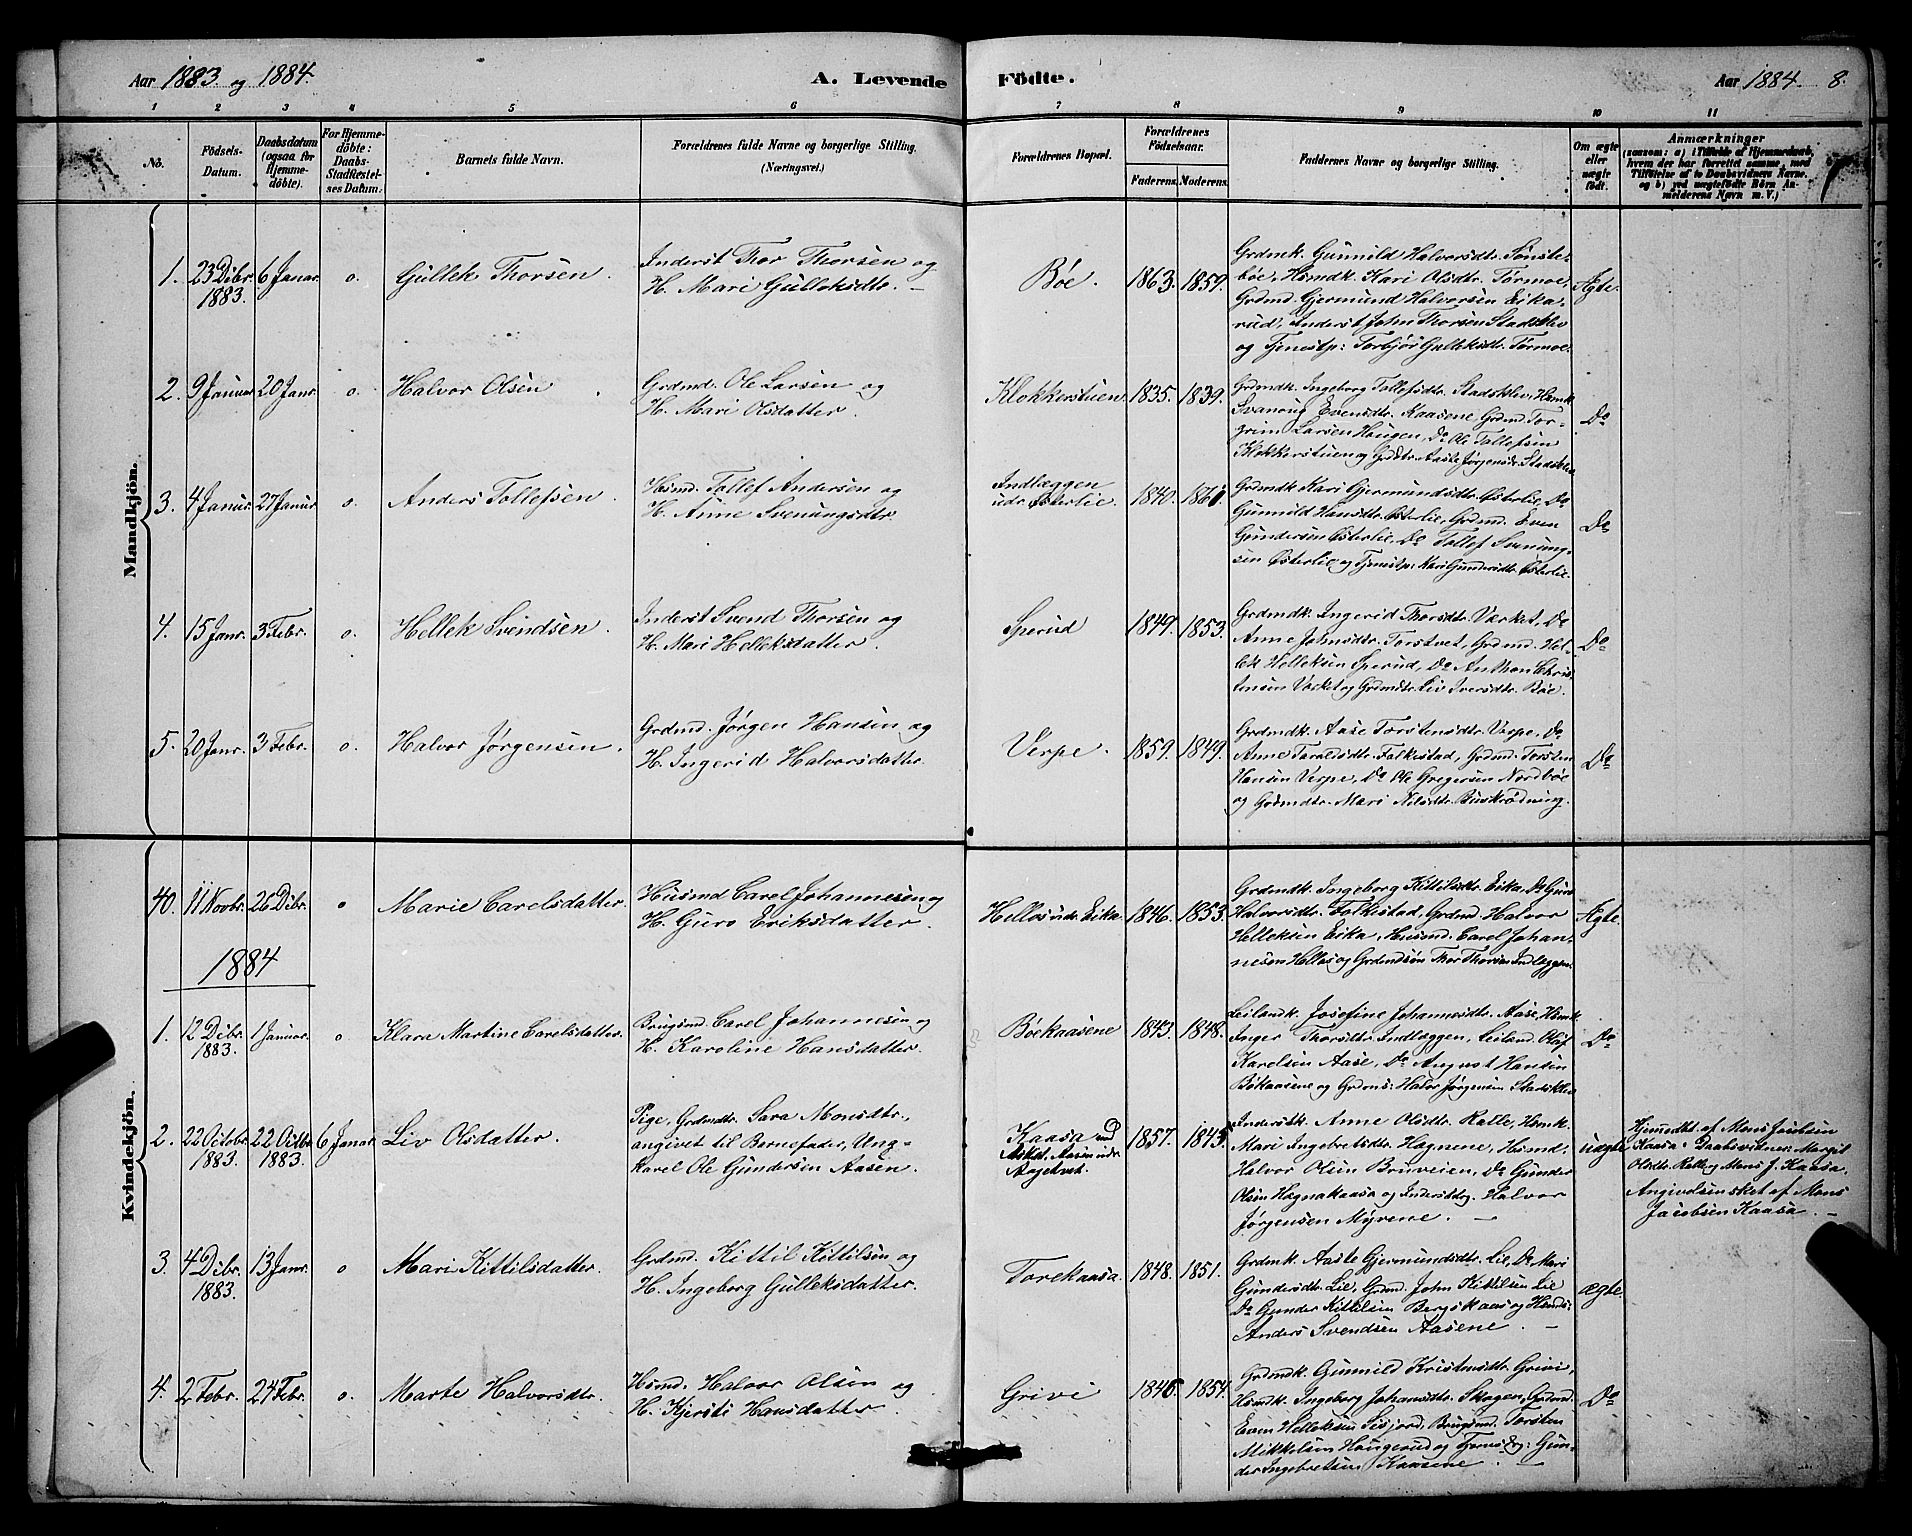 Aar 1883 og 1884.
A. Levende Födte.
Aar 1884. 8.
1 2 3 4 5 6 7 8 9 10 11
No.
Födsels-
Datum.
Daabsdatum
(ogsaa for
Hjemme-
döbte).
For Hjemme-
döbte:
Daabs-
Stadfæstel-
ses Datum.
Barnets fulde Navn.
Forældrenes fulde Navne og borgerlige Stilling.
(Næringsvei.)
Forældrenes Bopæl.
Forældrenes
Födselsaar.
Faderens. Moderens.
Faddernes Navne og borgerlige Stilling.
Om ægte
eller
uægte
födt.
Anmærkninger
(saasom: a) Tilfælde af Hjemmedaab,
hvem der har forrettet samme, med
Tilföielse af to Daabsvidners Navne.
og b) ved uægtefödte Börn An-
melderens Navn m. V.)
Mandkjön.
1. 23 Dcbr. 1883. 6 Januar. o. Gullek Thorsen.
Inderst Thor Thorsen og
H. Mari Gulleksdtr. –
Bøe. 1863. 1859.
Grdmk. Gunnild Halvorsdtr. Sønste-
bøe, Hsmdk. Kari Olsdtr. Tørmoe,
Grdmd. Gjermund Halvorsen Eika-
rud, Inderst John Thorsen Stadskliv
og Tjenestp: Torbjør Gulleksdtr. Tørmoe.
Ægte.
2. 9 Januar 20 Janr. o. Halvor Olsen
Grdmd. Ole Larsen og
H. Mari Olsdatter.
Klokkerstuen. 1835. 1839.
Grdmdk. Ingeborg Tollefsdtr. Stadskliv, Hsmk.
Svanoug Evensdtr. Kaasene, Grdmd. Tor-
grim Larsen Haugen, Do Ole Tollefsen
Klokkerstuen og Grdtr. Aaste Jørgensdr. Stadskliv
Do
3. 4 Januar 27 Januar o. Anders Tollefsen
Hsmd. Tollef Andersen og
H. Anne Svenungsdtr.
Indlæggen
udr. Østerlie. 1840. 1861.
Grdmdk Kari Gjermundsdtr. Østerlie, Do
Gunnild Hansdtr. Østerlie, Grdmd. Even
Gundersen Østerlie, Do Tollef Svenung-
sen Østerlie og Tjenstp: Kari Gundersdtr. Østerlie.
Do
4. 15 Janr. 3 Febr. o. Hellek Svendsen.
Inderst Svend Thorsen og
H. Mari Helleksdatter.
Sperud 1849. 1853.
Grdmdk. Ingerid Thorsdtr. Verket, Do
Anne Johnsdtr. Torstvet, Grdmd. Hel-
lek Helleksen Sperud, Do Anthon Chris-
tensen Verket og Grdmdtr. Liv Iversdtr. Bøe.
Do
5. 20 Janr. 3 Febr. o. Halvor Jørgensen.
Grdmd. Jørgen Hansen og
H. Ingerid Halvorsdatter.
Verpe. 1859. 1849.
Grdmdk. Aase Torstensdtr. Verpe, Do
Anne Taraldsdtr. Folkestad, Grdmd. Torsten
Hansen Verpe, Do Ole Gregersen Nordbøe
og Grdmdtr. Mari Nilsdtr. Buskrødning.
Do
Kvindekjön.
40. 11 Novbr. 26 Dcbr. o Marie Carelsdatter.
Husmd Carel Johannesen og
H. Guro Eriksdatter.
Hellos udr. Eika. 1846. 1853.
Grdmdk. Ingeborg Kittilsdtr. Eika, Do Guro
Halvorsdtr. Folkestad, Grdmd. Halvor
Helleksen Eika, Husmd. Carel Johan-
nesen Hellos og Grdmdsøn Thor Thorsen Indlæggen.
Ægte.
1884
1. 12 Dcbr. 1883. 1 Januar. o Klara Martine Carelsdatter.
Brugsmd. Carel Johannesen og
H. Karoline Hansdatter.
Bøekaasene 1843. 1848.
Leilandk. Josefine Johannesdtr. Aase, Hsmk
Inger Thorsdtr. Indlæggen, Leiland. Olaf
Karelsen Aase, Do August Hansen
Bøkaasene og Grdms: Halvor Jørgensen Stadskliv
Do
2. 22 Octobr. 1883. 22 Octbr 1883. 6 Januar Liv Olsdatter.
Pige, Grdmdtr. Sara Monsdtr.,
angivet til Barnefader, Ung-
karel Ole Gundersen Aasen.
Kaasa und
Eiket. Aasen udr. 1857. 1845
Grdmdk. Anne Olsdtr. Ralle, Hsmk.
Mari Ingebretsdtr. Hagnene, Husmd.
Halvor Olsen Bruveien, Do Gunder
Olsen Hagnakaasa og Inderst Halvor
Jørgensen Myrene. –
uægte
Hjemmedbt. af Mons Jacobsen
Kaasa. Daabsvidner: Margit
Olsdtr. Ralle og Mons J. Kaasa.
Angivelsen sket af Mons
Jacobsen Kaasa. –
3. 4 Dcbr. 1883. 13 Janr. o Mari Kittilsdatter.
Grdmd. Kittil Kittilsen og
H. Ingeborg Gulleksdatter.
Torekaasa. 1848. 1851.
Grdmk. Aaste Gjermundsdtr. Lie, Do Mari
Gundersdtr. Lie, Grdmd. John Kittilsen Lie
Do Gunder Kittilsen Bergskaas og Hsmds:
Anders Svendsen Aasene. –
ægte.
4. 2 Febr. 24 Febr. o. Marte Halvorsdtr.
Hsmd. Halvor Olsen og
H. Kjersti Hansdatter
Grivi 1845 1854.
Grdmdk. Gunnild Kristensdtr. Grivi,
Hsmdk. Ingeborg Johansdtr. Skogen, Grdmd.
Even Helleksen Sisjord, Brugsmd. Torsten
Mikkelsen Haugerud og Tjenstdrg: Gun-
der Ingebretsen Kaasene. –
Do